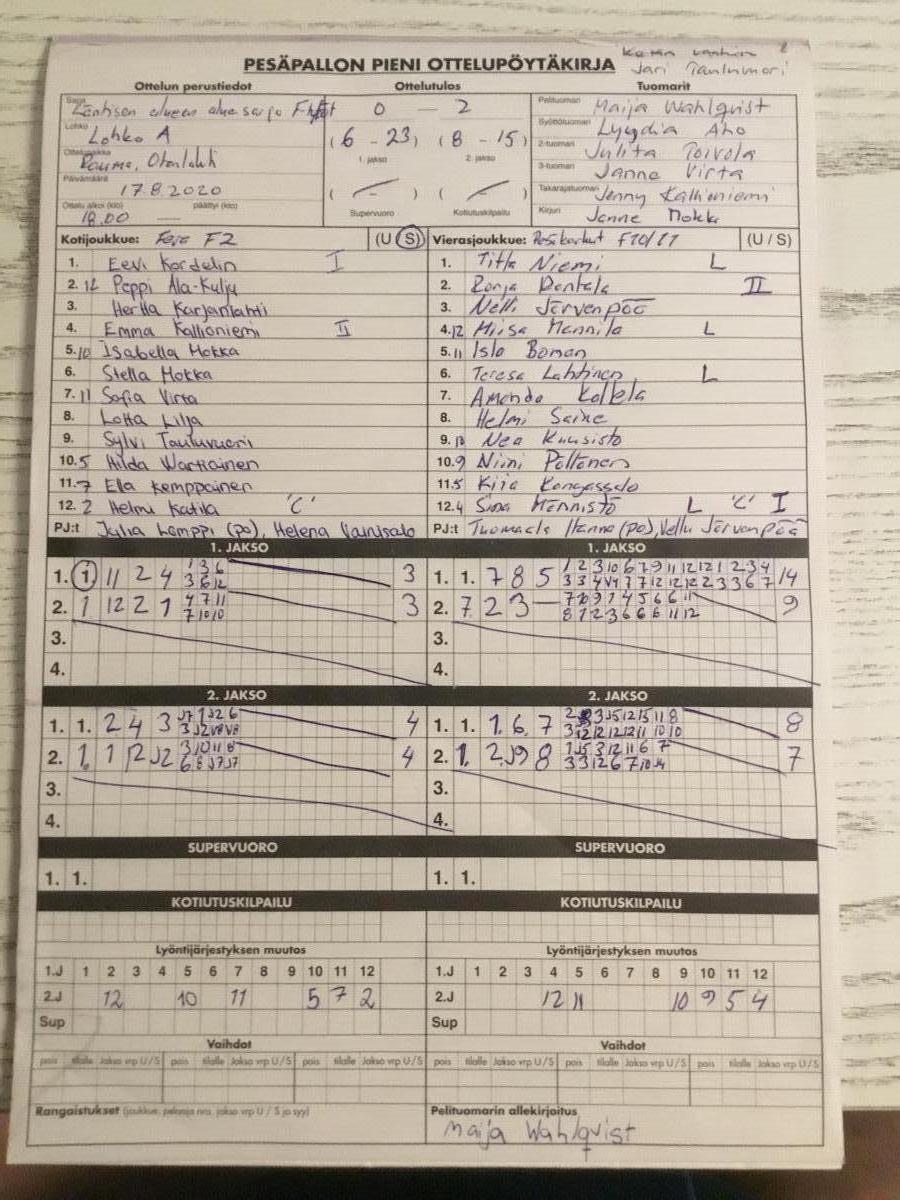 Jari Tauluvuori
PESÄPALLON PIENI OTTELUPÖYTÄKIRJA
Ottelun perustiedot Ottelutulos Tuomarit
Sarja Läntisen alueen aluesarja
0 - 2
Pelituomari Maija Wahlqvist
Lohko Lohko A
(6 - 23) (8 - 15)
1. jakso 2. jakso
Syöttötuomari Lyydia Aho
Ottelupaikka Rauma, Otanlahti
2-tuomari Julita Toivola
3-tuomari Janne Virta
Päivämäärä 17.8.2020
( - ) ( - )
Supervuoro Kotiutuskilpailu
Takarajatuomari Jenny Kallioniemi
Ottelu alkoi (klo) päättyi (klo)
18.00
Kirjuri Janne Mokka
Kotijoukkue: Fera F2 (U / S) Vierasjoukkue: Pesäkarhut F10/11 (U / S)
1. Eevi Kordelin I 1. Titta Niemi L
2. 12 Peppi Ala-Kulju 2. Ronja Pentala II
3. Hertta Karjanlahti 3. Nelli Järvenpää
4. Emma Kallioniemi II 4. 12 Miisa Mannila L
5. 10 Isabella Mokka 5. 11 Isla Boman
6. Stella Mokka 6. Teresa Lahtinen L
7. 11 Sofia Virta 7. Amanda Kallela
8. Lotta Lilja 8. Helmi Saine
9. Sylvi Tauluvuori 9. 10 Nea Kuusisto
10. 5 Hilda Wartiainen 10. 9 Niini Peltonen
11. 7 Ella Kemppainen 11. 5 Kiia Kangassalo
12. 2 Helmi Katila "C" 12. 4 Sina Mannistö L "C" I
PJ:t Julia Lamppi (pa), Helena Vainisalo PJ:t Tuomas Hanna (pa), Vellu Järvenpää
1. JAKSO 1. JAKSO
1. 1. 11 2 4 1 3 6 3 1. 1. 7 8 5 1 2 3 10 6 7 9 11 12 12 1 2 3 4 14
3 6 12
2. 1 12 2 1 4 7 11 3 2. 7 2 3 — 9
7 10 10
3. 3.
4. 4.
2. JAKSO 2. JAKSO
1. 1. 2 4 3 4 1. 1. 1. 6 7 8
2. 1. 1 12 J2 3 10 11 8 4 2. 1. 2 J9 8 7
3. 3.
4. 4.
SUPERVUORO SUPERVUORO
1. 1. 1. 1.
KOTIUTUSKILPAILU KOTIUTUSKILPAILU
Lyöntijärjestyksen muutos Lyöntijärjestyksen muutos
1.J 1 2 3 4 5 6 7 8 9 10 11 12 1.J 1 2 3 4 5 6 7 8 9 10 11 12
2.J 12 10 11 5 7 2 2.J 12 11 10 9 5 4
Sup Sup
Vaihdot Vaihdot
pois tilalle Jakso vrp U/S pois tilalle Jakso vrp U/S pois tilalle Jakso vrp U/S pois tilalle Jakso vrp U/S pois tilalle Jakso vrp U/S pois tilalle Jakso vrp U/S
Rangaistukset (joukkue, pelaaja nro, jakso vrp U / S ja syy) Pelituomarin allekirjoitus
Maija Wahlqvist